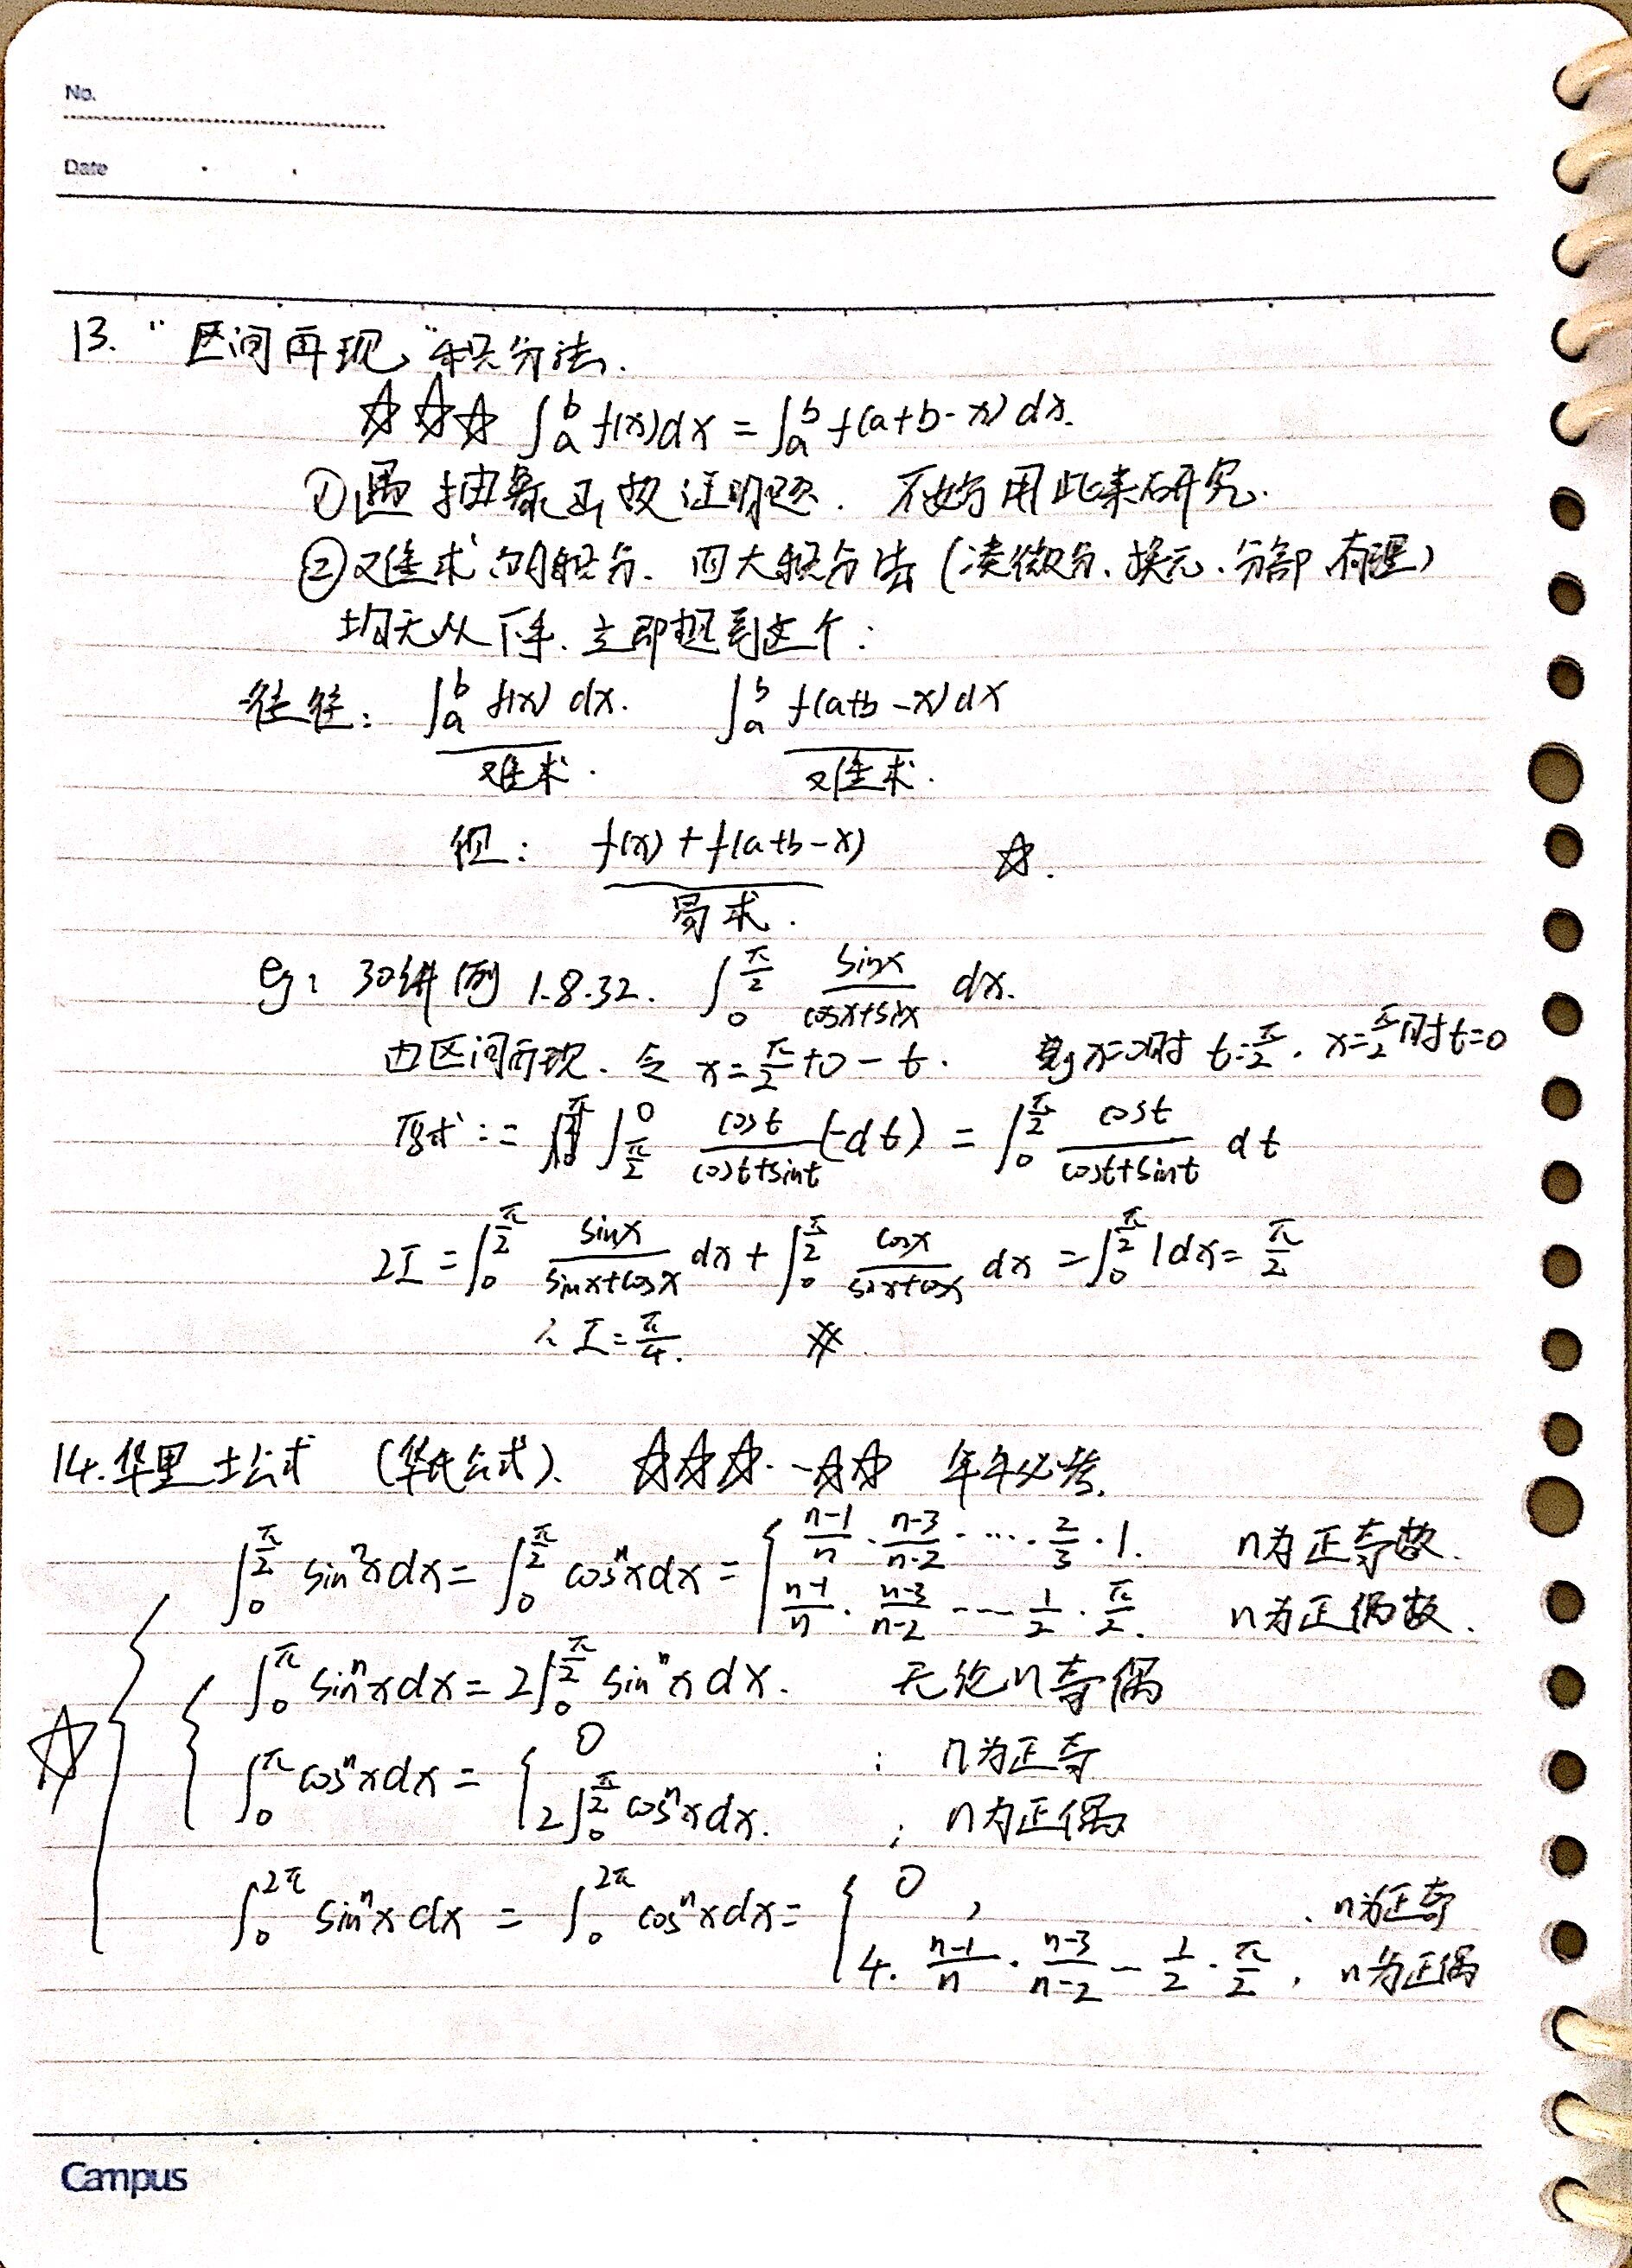 No.
Date
13. “区间再现”积分法.
☆☆☆ ∫_a^b f(x)dx = ∫_a^b f(a+b-x)dx.
①遇抽象函数证明题. 不妨用此来研究.
②难求的积分. 四大积分法(凑微分、换元、分部、有理)
均无从下手. 立即想到这个:
往往: ∫_a^b f(x) dx. ∫_a^b f(a+b-x)dx
难求. 难求.
但: f(x) + f(a+b-x) ☆.
易求.
eg: 30讲例 1.8.32. ∫_0^{π/2} \frac{sinx}{cosx+sinx} dx.
由区间再现. 令 x=\frac{π}{2}+0-t. 则x=0时 t=\frac{π}{2}. x=\frac{π}{2}时t=0
原式:= ∫_{π/2}^0 \frac{cost}{cost+sint}(-dt) = ∫_0^{π/2} \frac{cost}{cost+sint} dt
2I = ∫_0^{π/2} \frac{sinx}{sinx+cosx} dx + ∫_0^{π/2} \frac{cosx}{sinx+cosx} dx = ∫_0^{π/2} 1dx = \frac{π}{2}
∴ I = \frac{π}{4}.
14. 华里士公式 (华氏公式). ☆☆☆--☆☆ 年年必考.
∫_0^{π/2} sin^n x dx = ∫_0^{π/2} cos^n x dx = { \frac{n-1}{n} · \frac{n-3}{n-2} ····· \frac{2}{3} · 1. n为正奇数.
\frac{n-1}{n} · \frac{n-3}{n-2} ---- \frac{1}{2} · \frac{π}{2}. n为正偶数.
∫_0^π sin^n x dx = 2∫_0^{π/2} sin^n x dx. 无论n奇偶
☆ ∫_0^π cos^n x dx = { 0 ; n为正奇
2∫_0^{π/2} cos^n x dx. ; n为正偶
∫_0^{2π} sin^n x dx = ∫_0^{2π} cos^n x dx = { 0 , n为正奇
4. \frac{n-1}{n} · \frac{n-3}{n-2} -- \frac{1}{2} · \frac{π}{2}, n为正偶
Campus